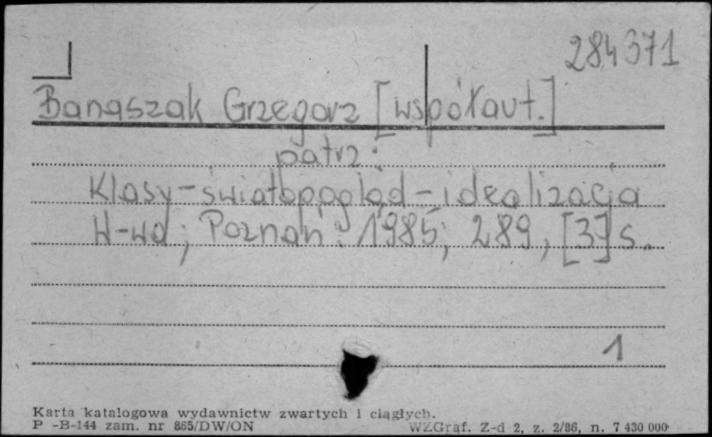 284371
Banaszak Grzegorz [współaut.]
patrz:
Klasy-światopogląd-idealizacja
W-wa; Poznań: 1985; 289, [3] s.
1
Karta katalogowa wydawnictw zwartych i ciągłych.
P -B-144 zam. nr 865/DW/ON WZGraf. Z-d 2, z. 2/86, n. 7 430 000